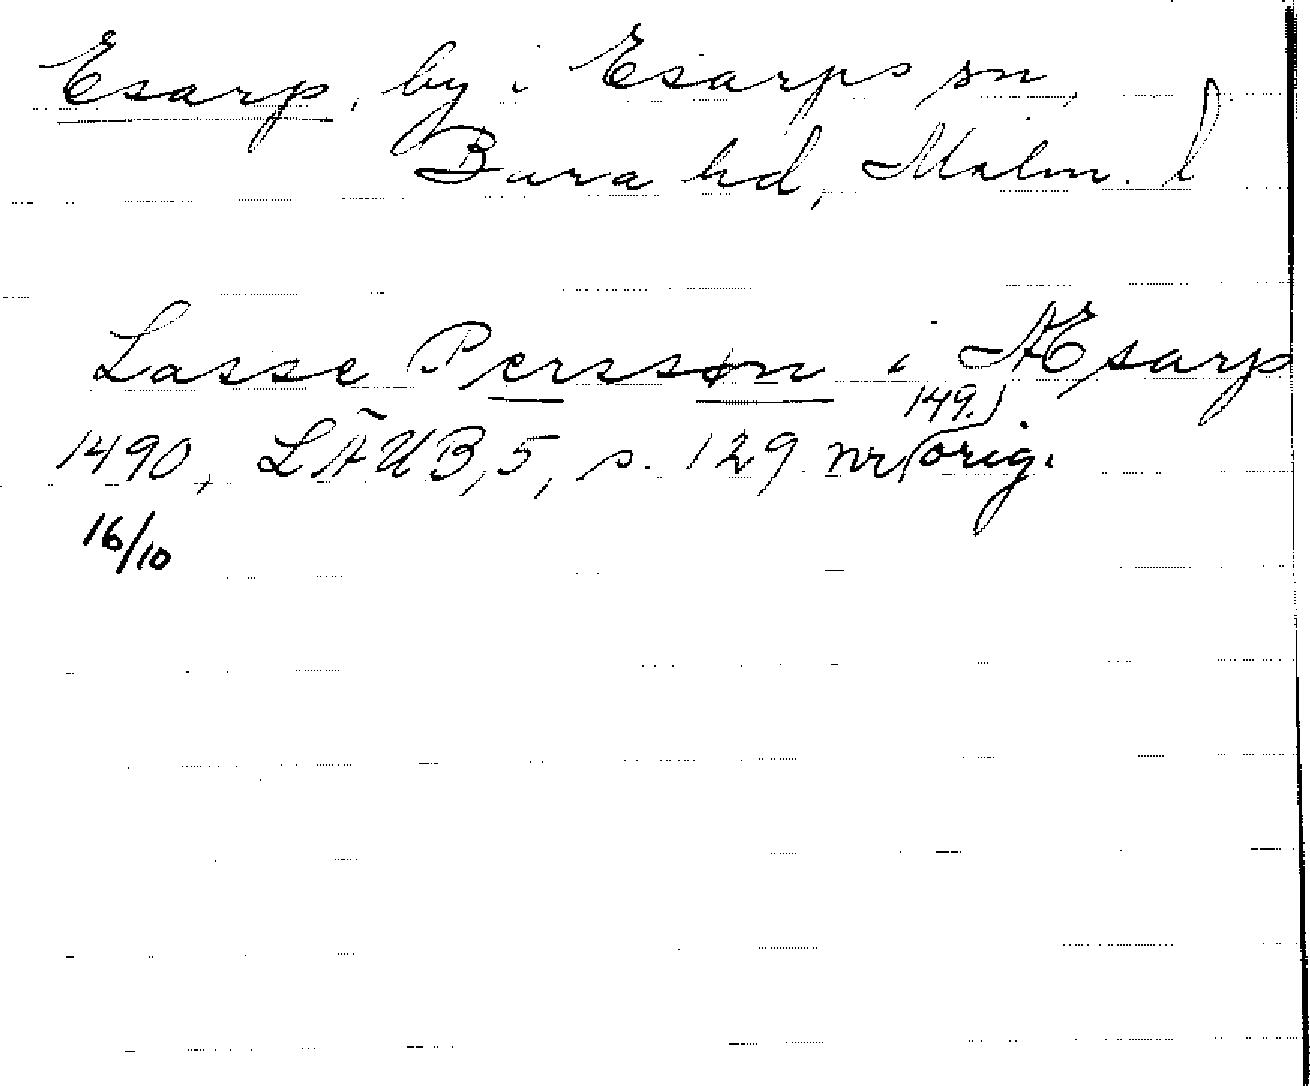 Esarp, by i Esarps sn,
Bara hd, Malm. l
Lasse Perssøn i Æsarp
1490, LÄUB, 5, s. 129 nr 149. orig.
16/10